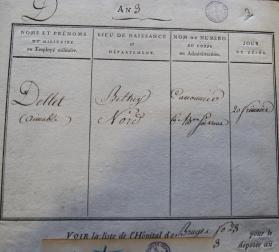 AN 3
NOMS ET PRÉNOMS
DU MILITAIRE
ou Employé militaire.
LIEU DE NAISSANCE
ET
DÉPARTEMENT.
NOM OU NUMÉRO
DU CORPS
ou Administration.
JOUR
DU DÉCÈS.
Dellet
Nord
Canonnier
20 frimaire
VOIR la liste de l'Hôpital de Bruges N° 23 pour le
3
déposée au